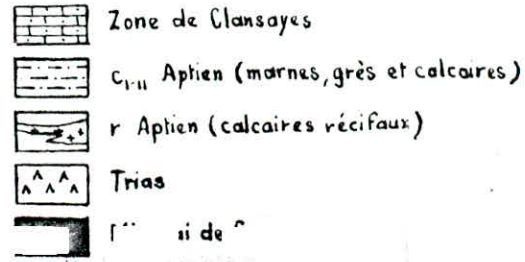 Zone de Clansayes
C₁₋₁₁ Aptien (marnes, grès et calcaires)
r Aptien (calcaires récifaux)
Trias
de